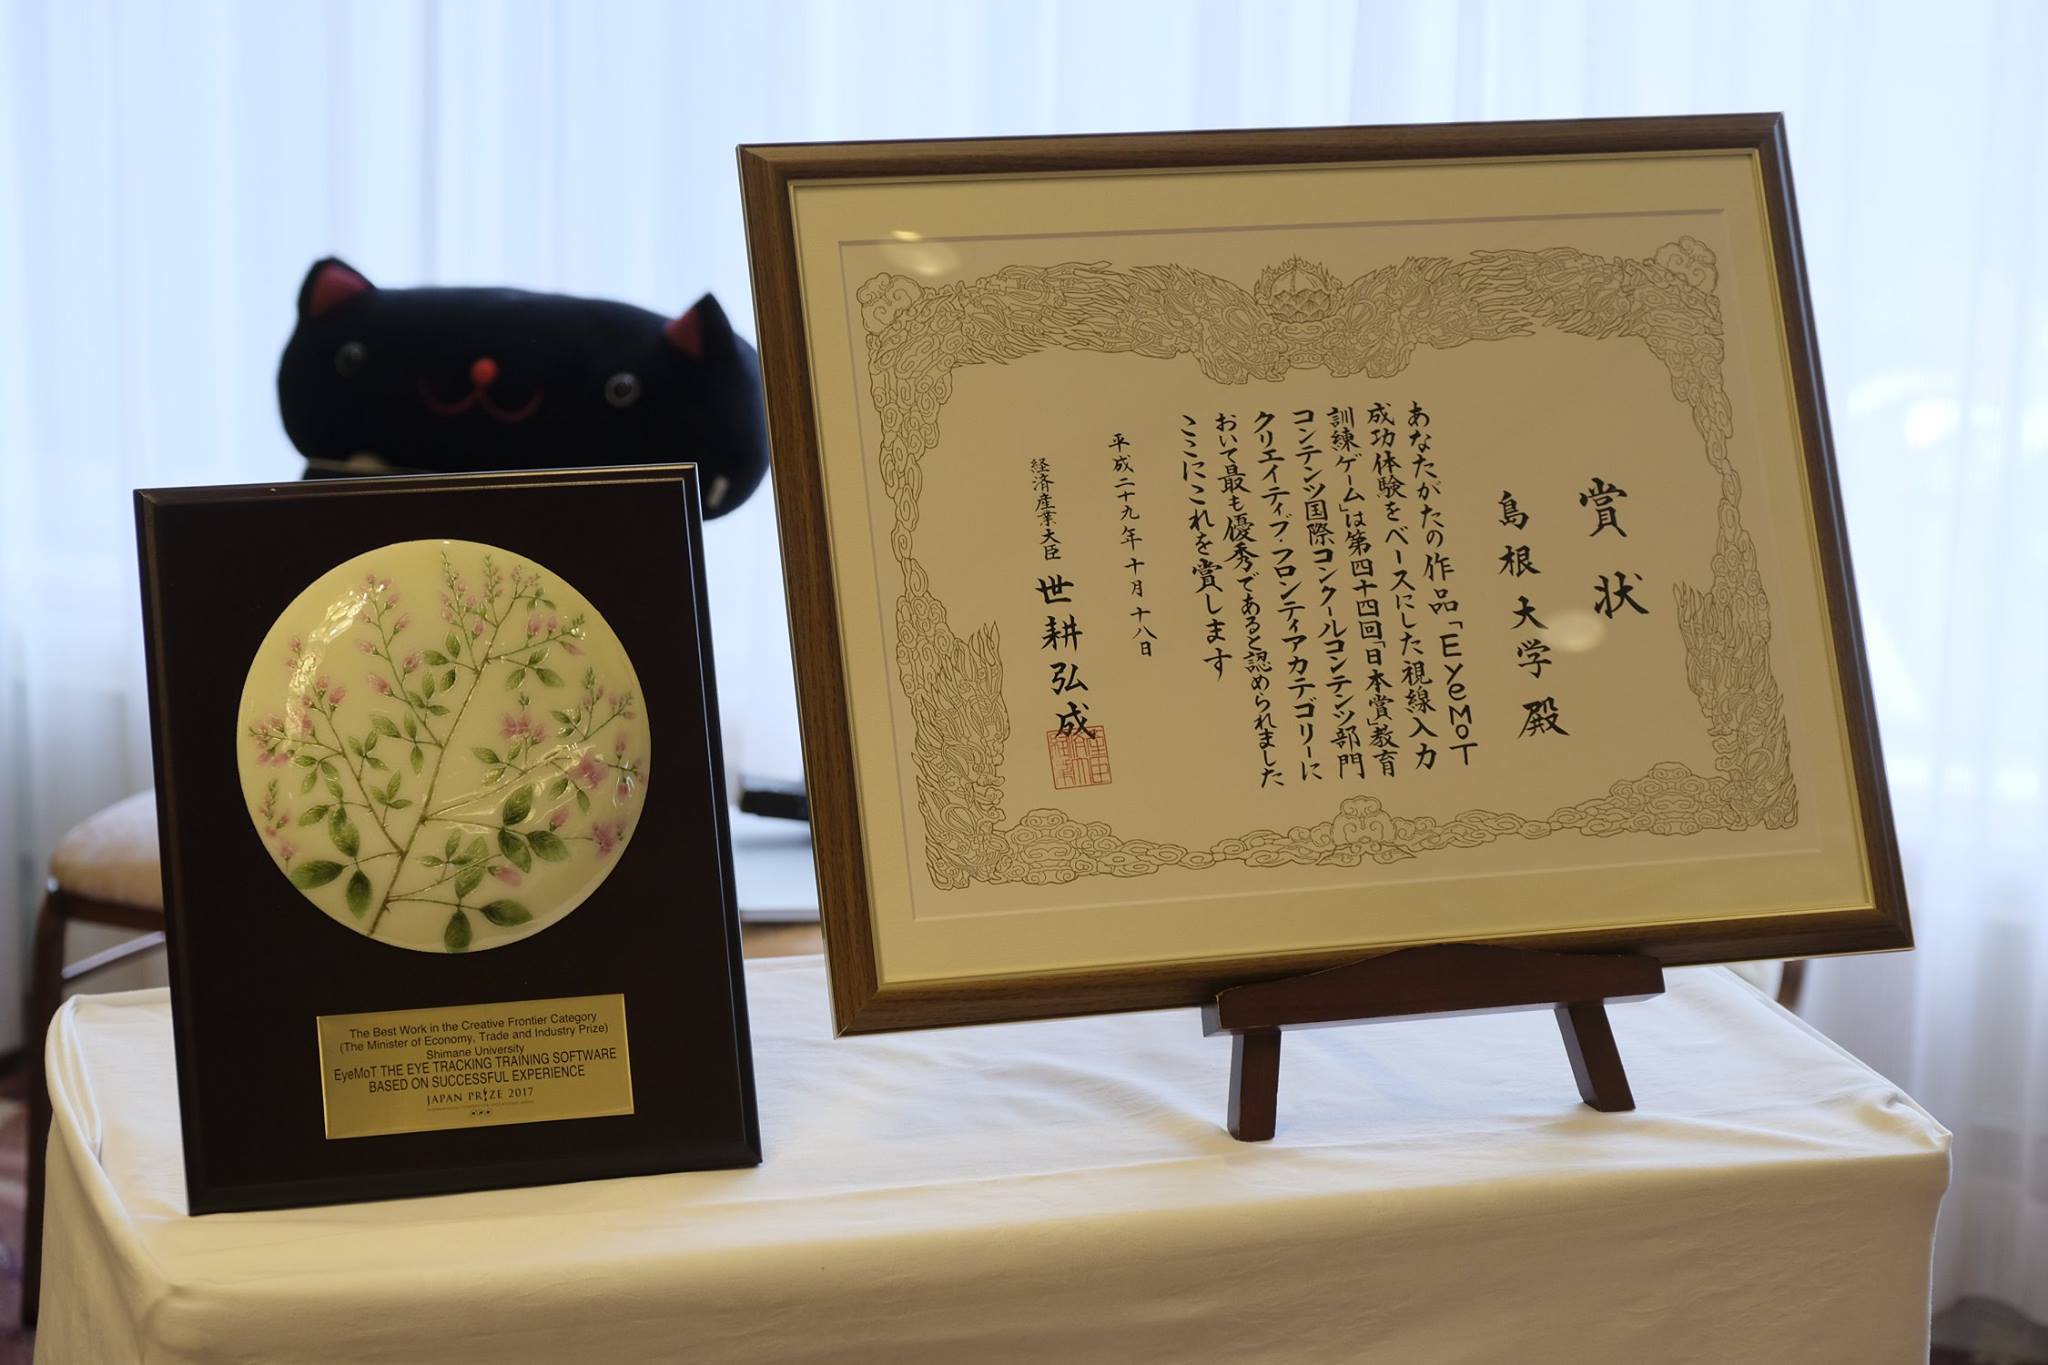 The Best Work in the Creative Frontier Category
(The Minister of Economy, Trade and Industry Prize)
Shimane University
EyeMoT THE EYE TRACKING TRAINING SOFTWARE
BASED ON SUCCESSFUL EXPERIENCE
JAPAN PRIZE 2017
賞状
島根大学殿
あなたがたの作品「EyeMoT
成功体験をベースにした視線入力
訓練ゲーム」は第四十四回「日本賞」教育
コンテンツ国際コンクールコンテンツ部門
クリエイティブ・フロンティアカテゴリーに
おいて最も優秀であると認められました
ここにこれを賞します
平成二十九年十月十八日
経済産業大臣 世耕弘成